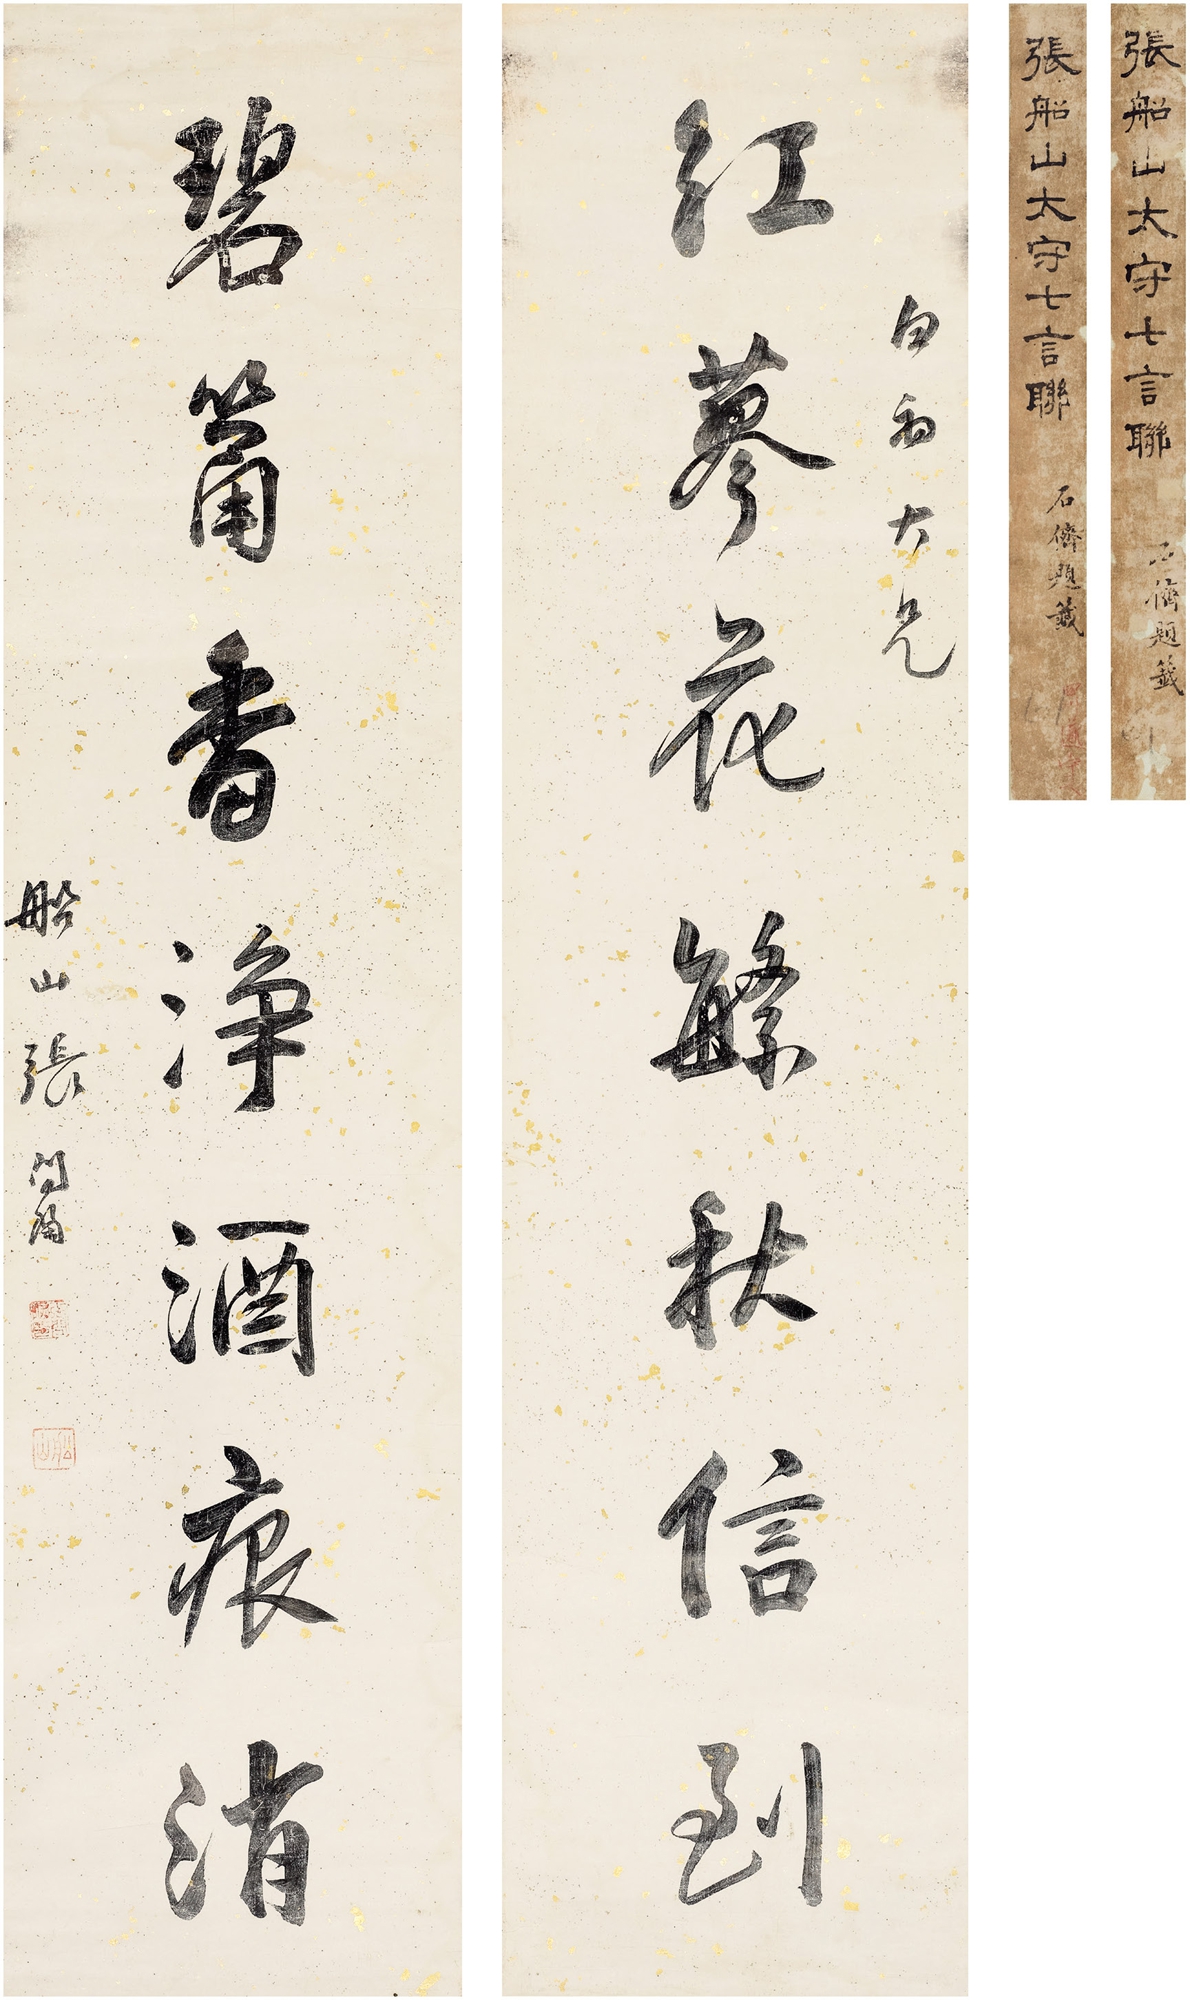 張船山太守七言聯
石儕題籤
張船山太守七言聯
石儕題籤
白初大兄
紅蓼花繁秋信到
碧筩香淨酒痕消
船山張問陶
船山